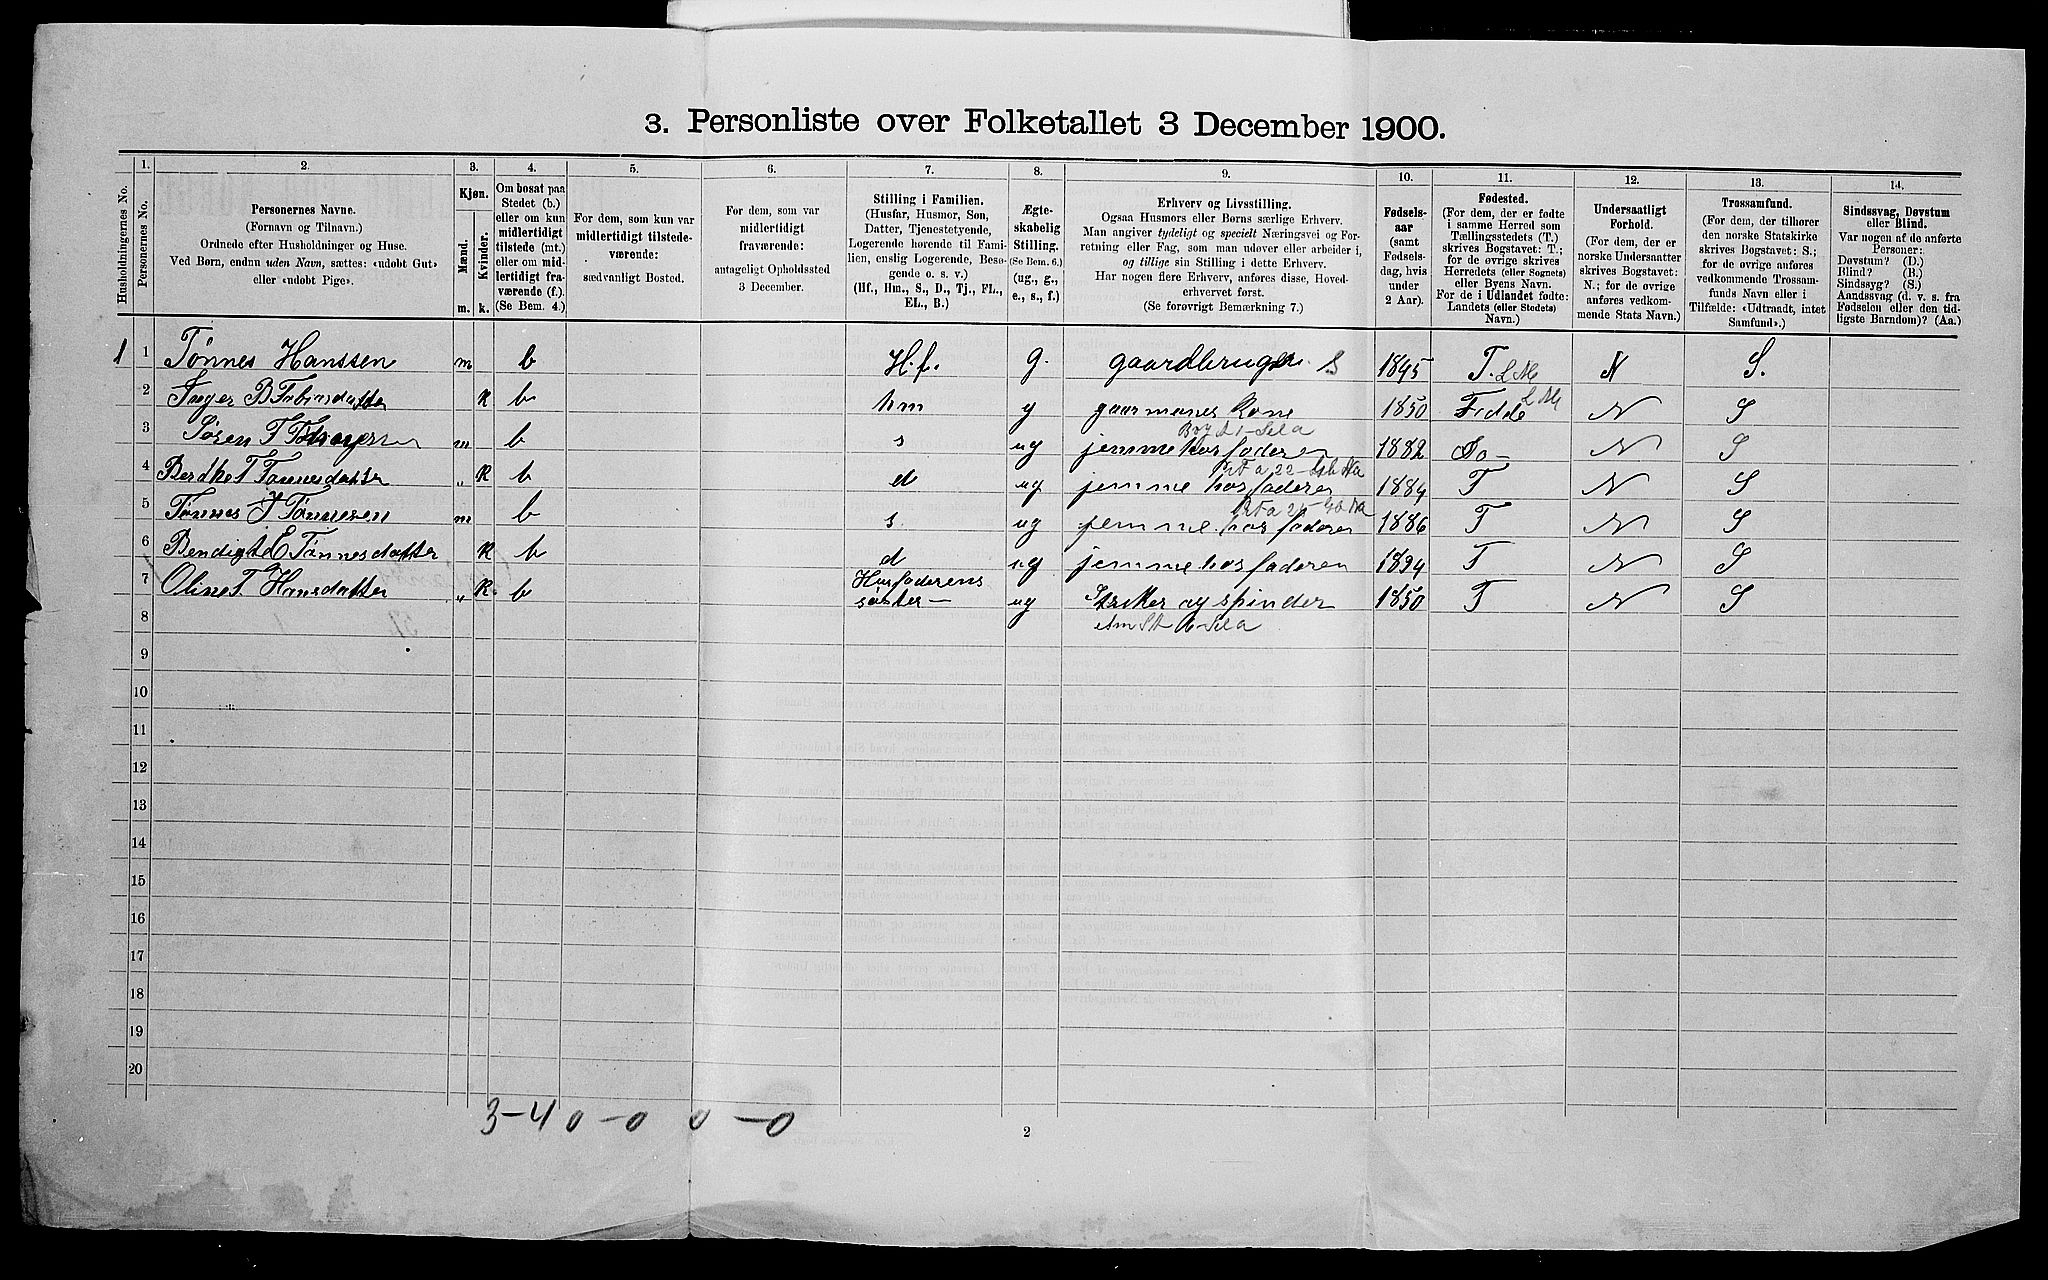 3. Personliste over Folketallet 3 December 1900.
Husholdningernes No.
1.
Personernes No.
2.
Personernes Navne.
(Fornavn og Tilnavn.)
Ordnede efter Husholdninger og Huse.
Ved Børn, endnu uden Navn, sættes: «udøbt Gut»
eller «udøbt Pige».
3.
Kjøn.
Mænd.
Kvinder.
m. k.
4.
Om bosat paa
Stedet (b.)
eller om kun
midlertidigt
tilstede (mt.)
eller om mid-
lertidigt fra-
værende (f.)
(Se Bem. 4.)
5.
For dem, som kun var
midlertidigt tilstede-
værende:
sædvanligt Bosted.
6.
For dem, som var
midlertidigt
fraværende:
antageligt Opholdssted
3 December.
7.
Stilling i Familien.
(Husfar, Husmor, Søn,
Datter, Tjenestetyende,
Logerende hørende til Fami-
lien, enslig Logerende, Besø-
gende o. s. v.)
(Hf., Hm., S., D., Tj., FL.,
EL., B.)
8.
Ægte-
skabelig
Stilling.
(Se Bem. 6.)
(ug., g.,
e., s., f.)
9.
Erhverv og Livsstilling.
Ogsaa Husmors eller Børns særlige Erhverv.
Man angiver tydeligt og specielt Næringsvei og For-
retning eller Fag, som man udøver eller arbeider i,
og tillige sin Stilling i dette Erhverv.
Har nogen flere Erhverv, anføres disse, Hoved-
erhvervet først.
(Se forøvrigt Bemærkning 7.)
10.
Fødsels-
aar
(samt
Fødsels-
dag, hvis
under
2 Aar).
11.
Fødested.
(For dem, der er fødte
i samme Herred som
Tællingsstedets (T.)
skrives Bogstavet: T.;
for de øvrige skrives
Herredets (eller Sognets)
eller Byens Navn.
For de i Udlandet fødte:
Landets (eller Stedets)
Navn.)
12.
Undersaatligt
Forhold.
(For dem, der er
norske Undersaatter
skrives Bogstavet:
N.; for de øvrige
anføres vedkom-
mende Stats Navn.)
13.
Trossamfund.
(For dem, der tilhører
den norske Statskirke
skrives Bogstavet: S.;
for de øvrige anføres
vedkommende Trossam-
funds Navn eller i
Tilfælde: «Udtraadt, intet
Samfund».)
14.
Sindssvag, Døvstum
eller Blind.
Var nogen af de anførte
Personer:
Døvstum? (D.)
Blind? (B.)
Sindssyg? (S.)
Aandssvag (d. v. s. fra
Fødselen eller den tid-
ligste Barndom)? (Aa.)
1 1 Tønnes Hanssen m b H.f. g. gaardbruger S 1845 T. L M N S.
2 Inger B k b hm g gaarmanes Kone 1850 L M N S
3 Søren T m b s ug jemme hos faderen 1882 Do N S
4 k b d ug jemme hos faderen 1884 T N S
5 Tønnes J Tønnesen m b s. ug jemme hos faderen 1886 T N S
6 E Tønnesdatter k b d ug jemme hos faderen 1894 T N S
7 Oline T Hansdatter „ k. b Husfaderens
søster ug Strikker og spinder 1850 T N S
8
9
10
11
12
13
14
15
16
17
18
19
20
3-4 0-0 0-0
2